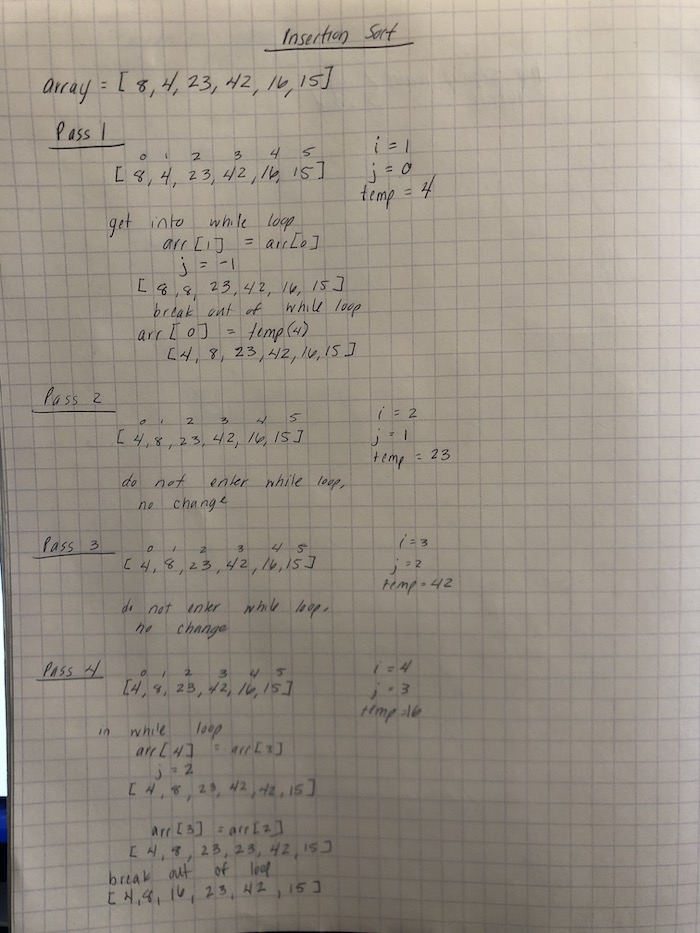 Insertion Sort
array = [ 8, 4, 23, 42, 16, 15]
Pass 1
0 1 2 3 4 5
[ 8, 4, 23, 42, 16, 15]
i = 1
j = 0
temp = 4
get into while loop
arr [1] = arr[0]
j = -1
[ 8, 8, 23, 42, 16, 15]
break out of while loop
arr [ 0] = temp(4)
[4, 8, 23, 42, 16, 15]
Pass 2
0 1 2 3 4 5
[ 4, 8, 23, 42, 16, 15]
i = 2
j = 1
temp = 23
do not enter while loop,
no change
Pass 3
0 1 2 3 4 5
[ 4, 8, 23, 42, 16, 15]
i = 3
j = 2
temp = 42
do not enter while loop.
no change
Pass 4
0 1 2 3 4 5
[4, 8, 23, 42, 16, 15]
i = 4
j = 3
temp = 16
in while loop
arr [4] = arr[3]
j = 2
[ 4, 8, 23, 42, 42, 15]
arr [3] = arr[2]
[ 4, 8, 23, 23, 42, 15]
break out of loop
[ 4, 8, 16, 23, 42, 15]